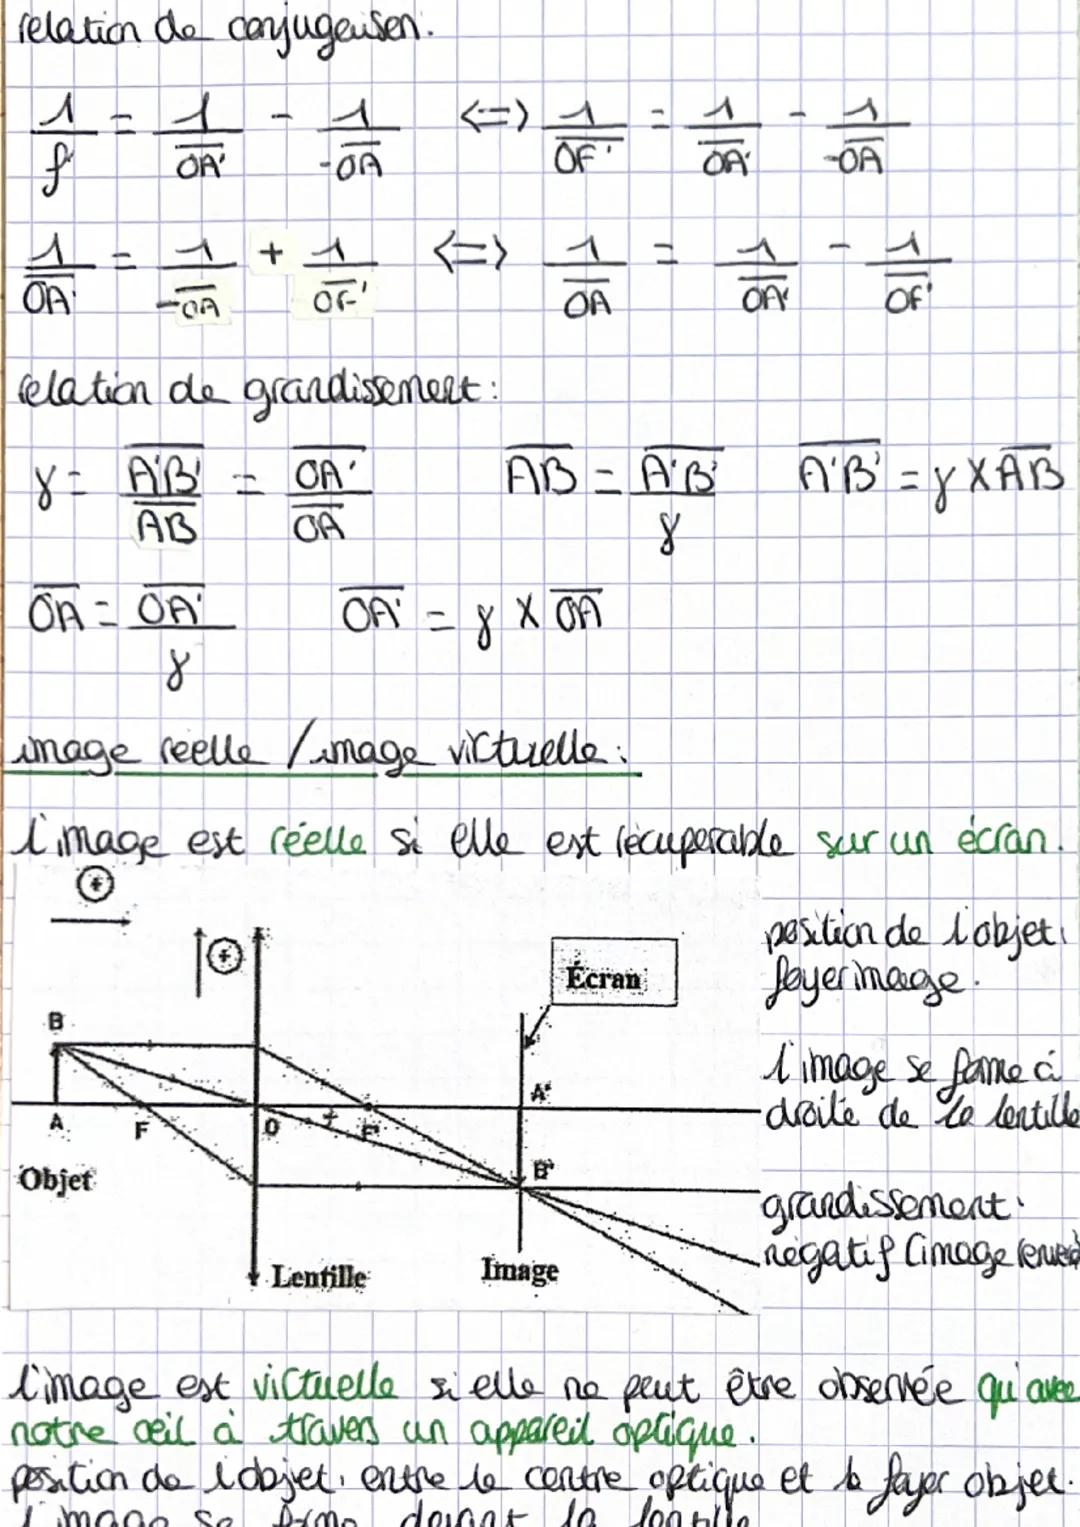 relation de conjugeuisen.
1/f' = 1/OA' - 1/-OA <=> 1/OF' = 1/OA' - 1/-OA
1/OA' = 1/-OA + 1/OF' <=> 1/OA = 1/OA' - 1/OF'
relation de grandissement:
γ = A'B'/AB = OA'/OA AB = A'B'/γ A'B' = γ X AB
OA = OA'/γ OA' = γ X OA
image reelle / image virtuelle:
l'image est réelle si elle est récuperable sur un écran.
+
+
Écran
B
A
F
O
F'
A'
B'
Objet
Lentille
Image
position de l'objet:
foyer image.
l'image se forme à
droite de la lentille
grandissement:
négatif (image
l'image est virtuelle si elle ne peut être observée qu'avec
notre œil à travers un appareil optique.
position de l'objet: entre le centre optique et le foyer objet.
l'image se forme devant la lentille